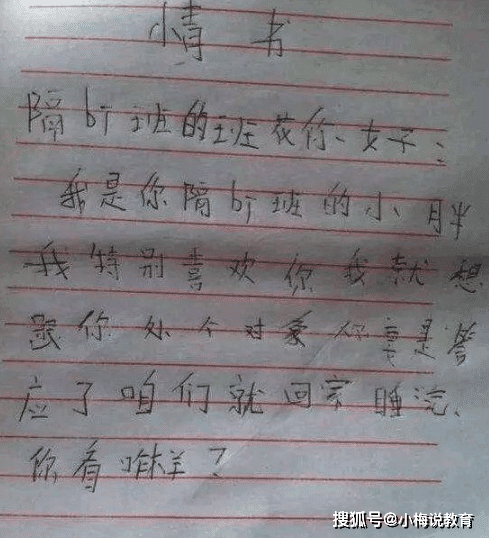 情书
隔bi班的班花你、女子：
我是你隔bi班的小胖
我特别喜欢你我就想
跟你处个对象你要是答
应了咱们就回家睡觉、
你看咋样？
搜狐号@小梅说教育